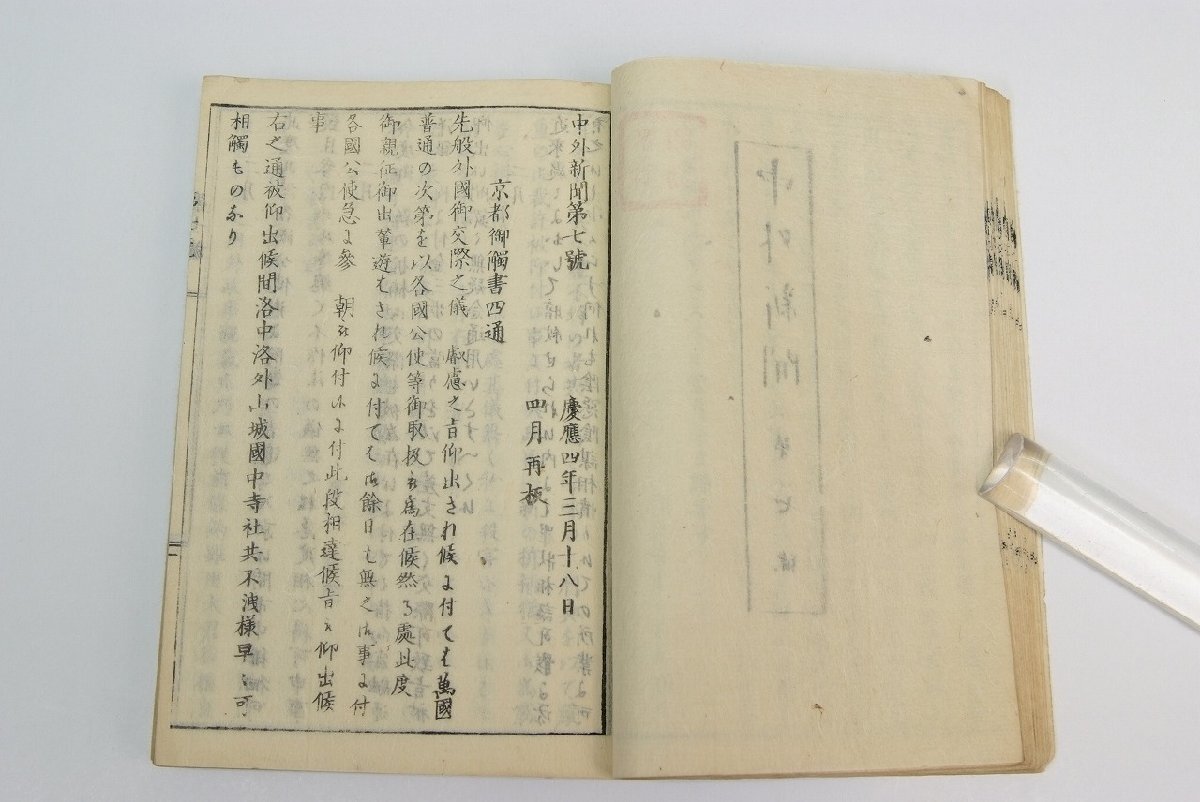 中外新聞第七號
慶應四年三月十八日
京都御觸書四通
四月再板
先般外國御交際之儀 叡慮之旨仰出され候に付ては萬國
普通の次第を以各國公使等御取扱被爲在候然る處此度
御親征御出輦遊はされ候に付ては餘日も無之御事に付
各國公使急に參 朝被仰付候に付此段相達候旨被仰出候
事
右之通被仰出候間洛中洛外山城國中寺社共不洩様早々可
相觸ものなり
中外新聞